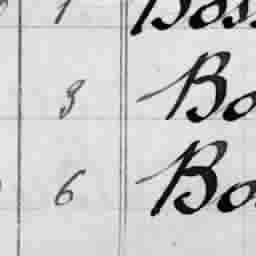 1 Boss
3 Bo
6 Bo